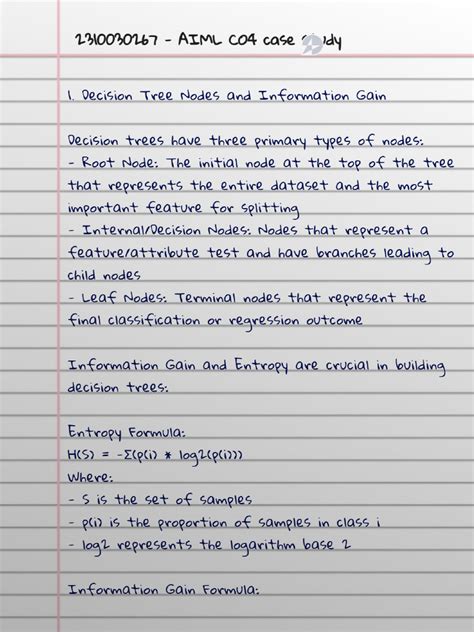 2310030267 - AIML CO4 case study
1. Decision Tree Nodes and Information Gain
Decision trees have three primary types of nodes:
- Root Node: The initial node at the top of the tree
that represents the entire dataset and the most
important feature for splitting
- Internal/Decision Nodes: Nodes that represent a
feature/attribute test and have branches leading to
child nodes
- Leaf Nodes: Terminal nodes that represent the
final classification or regression outcome
Information Gain and Entropy are crucial in building
decision trees:
Entropy Formula:
H(S) = -Σ(p(i) * log2(p(i)))
Where:
- S is the set of samples
- p(i) is the proportion of samples in class i
- log2 represents the logarithm base 2
Information Gain Formula: